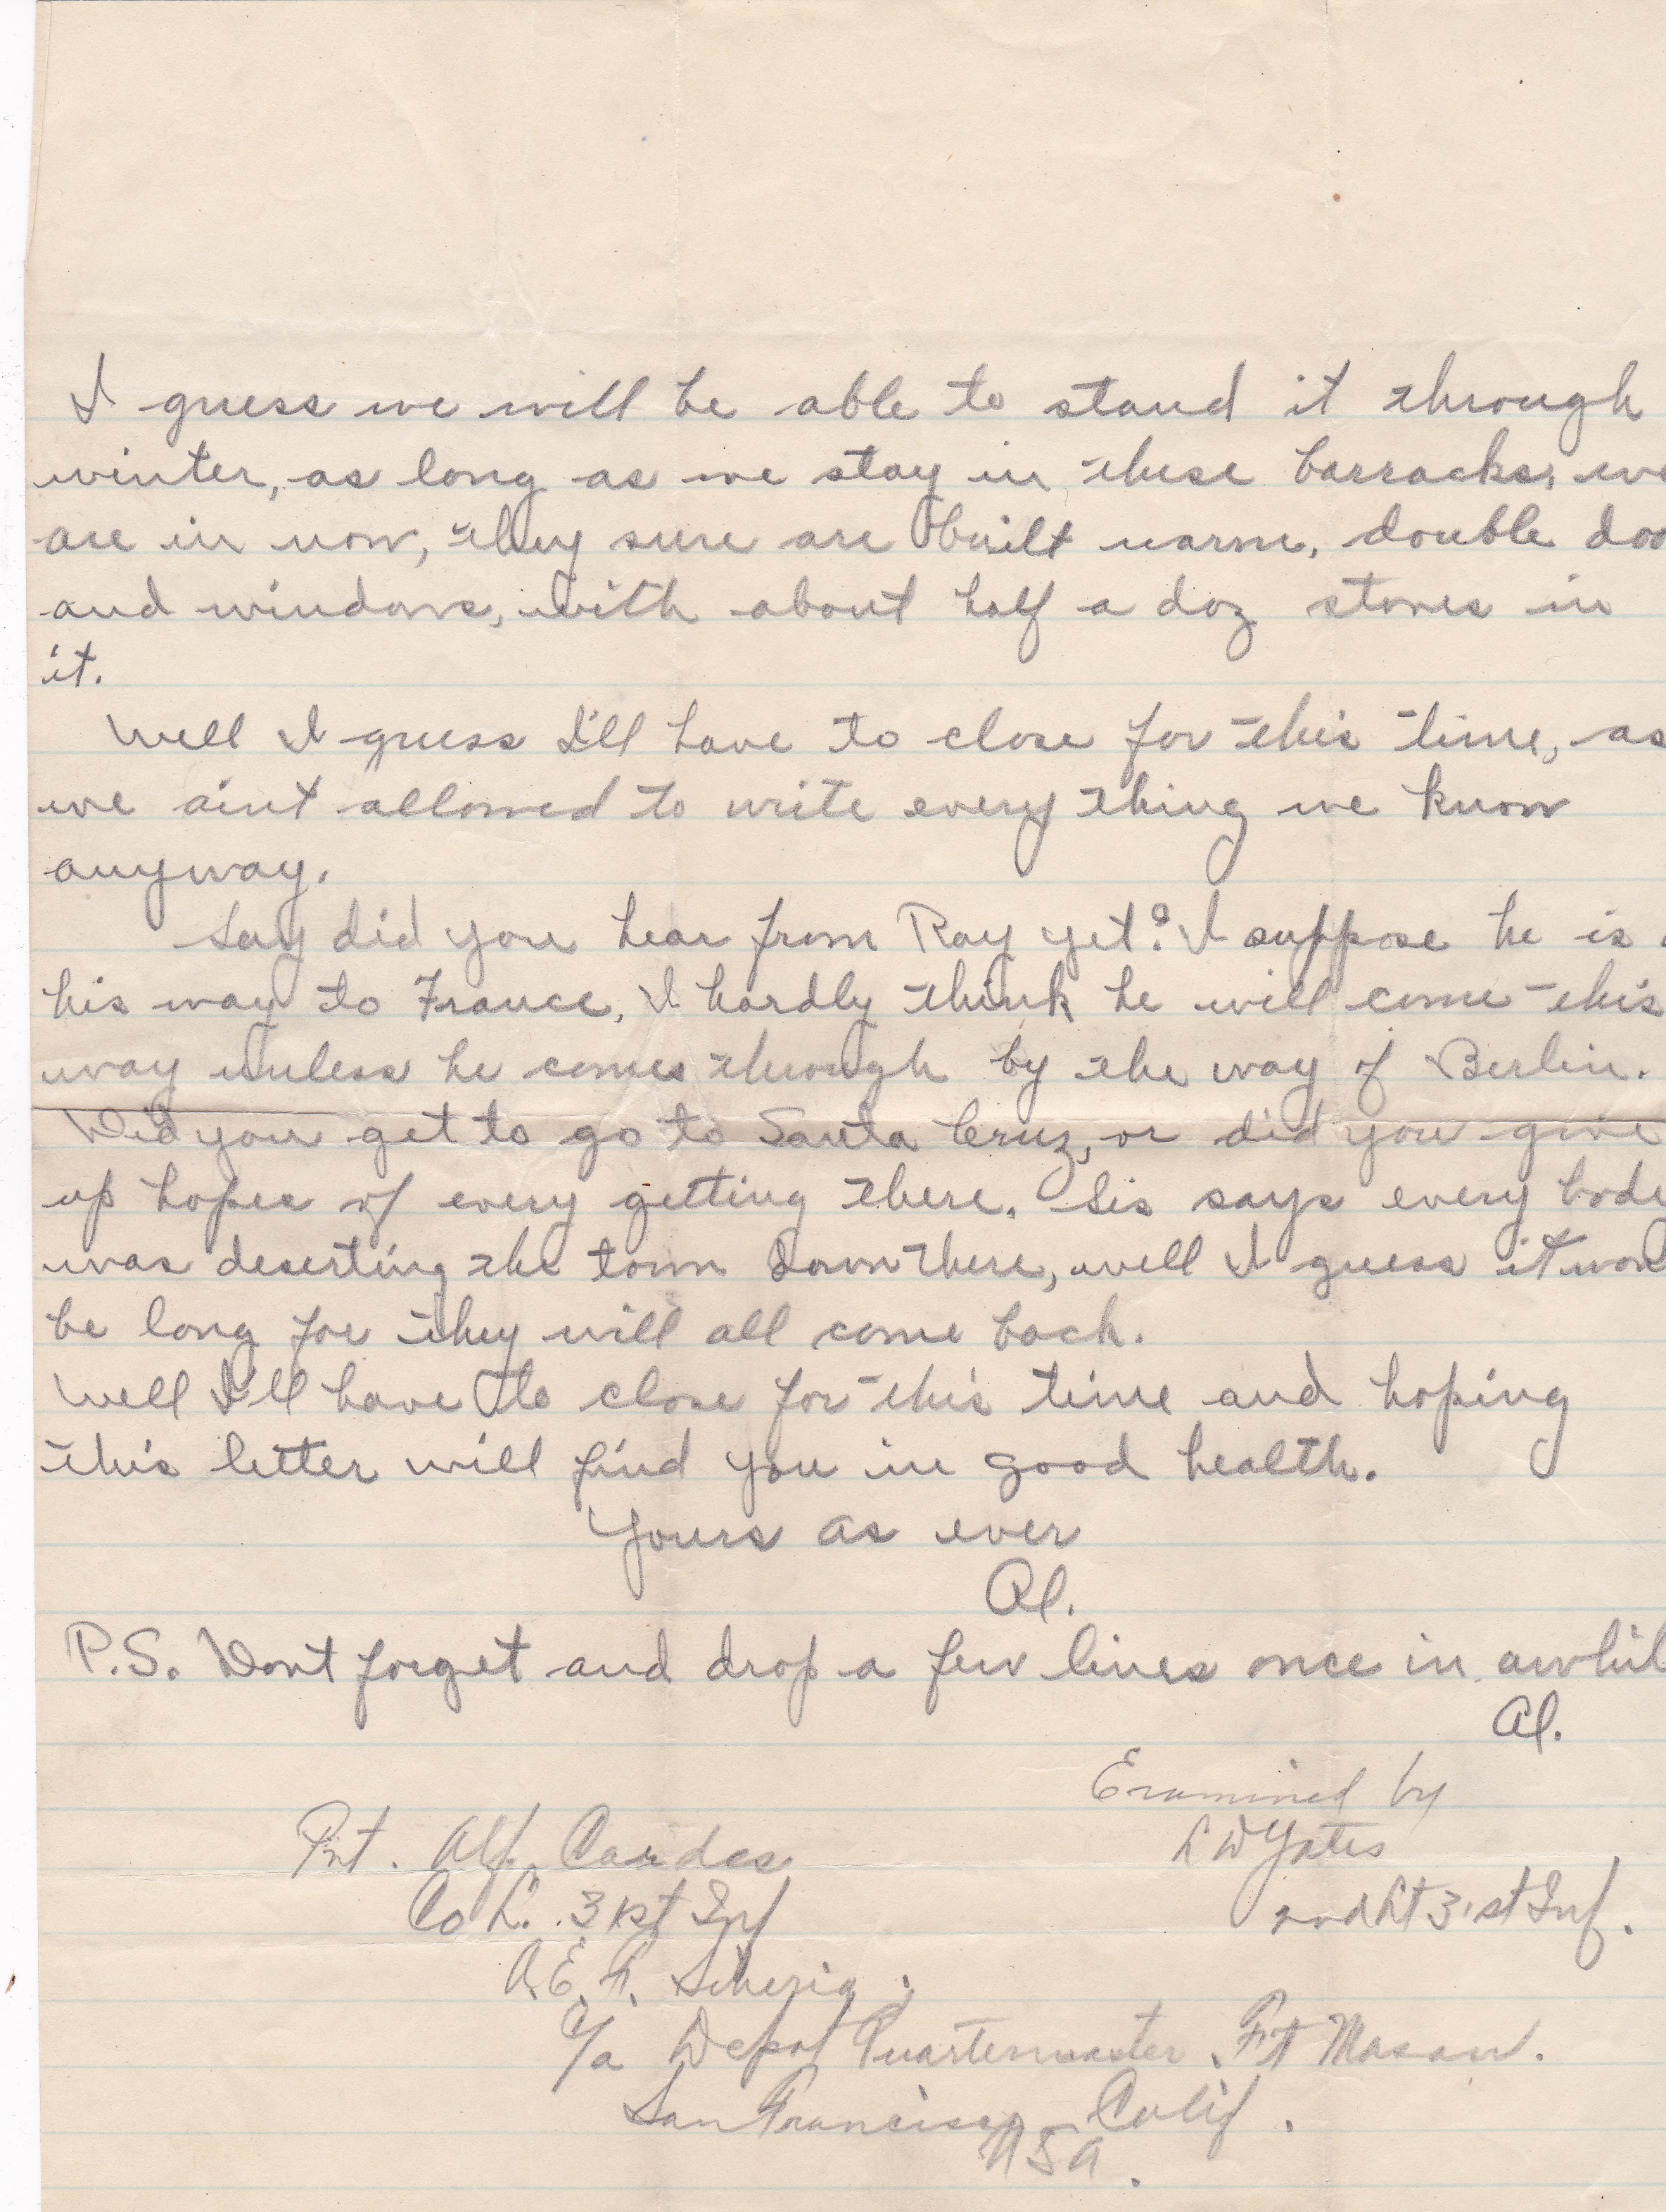 I guess we will be able to stand it through
winter, as long as we stay in these barracks, we
are in now, they sure are built warm, double doo
and windows, with about half a doz stoves in
it.
Well I guess I'll have to close for this time, as
we aint allowed to write every thing we know
anyway.
Say did you hear from Ray yet? I suppose he is
his way to France, I hardly think he will come this
way unless he comes through by the way of Berlin.
Did you get to go to Santa Cruz, or did you give
up hopes of every getting there. Sis says every body
was deserting the town down there, well I guess it won
be long for they will all come back.
Well I'll have to close for this time and hoping
this letter will find you in good health.
Yours as ever
Al.
P.S. Dont forget and drop a few lines once in awhil
Al.
Examined by
L W Yates
2nd Lt 31st Inf.
Pvt. Alf. Cardes
Co L. 31st Inf
A.E.F. Siberia
c/o Depot Quartermaster Ft Mason.
San Francisco Calif.
USA.